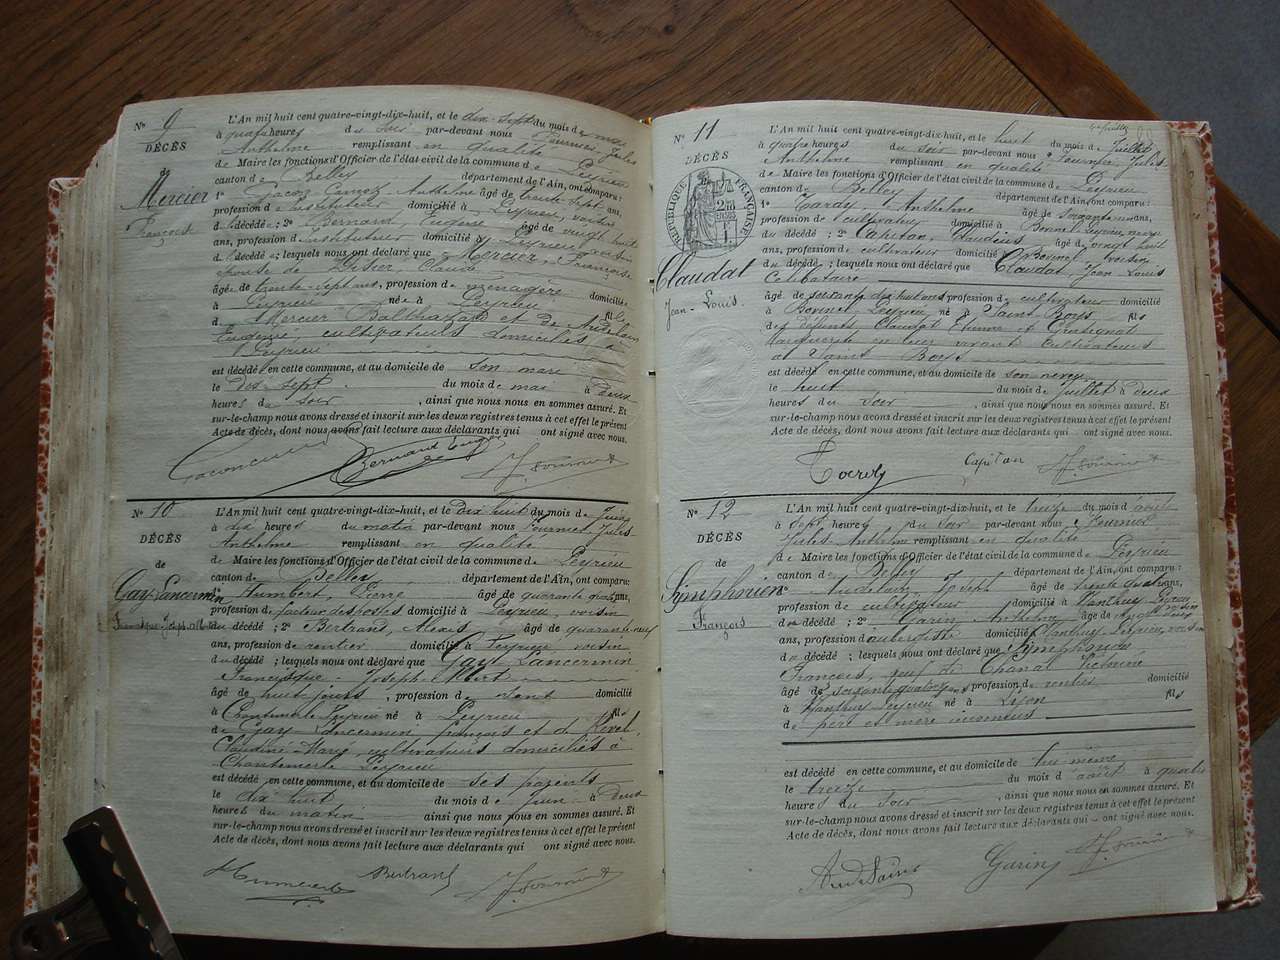 No 9
DÉCÈS
de
Mercier
Françoise
L'An mil huit cent quatre-vingt-dix-huit, et le dix-sept du mois de mai
à quatre heures du soir par-devant nous Fournier, Jules
Anthelme remplissant en qualité
de Maire les fonctions d'Officier de l'état civil de la commune de Peyrieu
canton de Belley département de l'Ain, ont comparu :
1° Anthelme âgé de trente sept ans,
profession d'instituteur domicilié à Peyrieu, voisin
du décédé ; 2° Bernard Eugène âgé de vingt huit
ans, profession d'instituteur domicilié à Peyrieu, voisin
du décédé ; lesquels nous ont déclaré que Mercier, Françoise
épouse de Claude
âgée de trente-sept ans, profession de ménagère domicilié
à Peyrieu née à Peyrieu fille
de Mercier Balthazard et de Andelain
Eugénie, cultivateurs domiciliés à
Peyrieu
est décédé en cette commune, et au domicile de son mari
le dix sept du mois de mai à deux
heures du soir, ainsi que nous nous en sommes assuré. Et
sur-le-champ nous avons dressé et inscrit sur les deux registres tenus à cet effet le présent
Acte de décès, dont nous avons fait lecture aux déclarants qui ont signé avec nous.
Bernard Eugène
J. Fournier
No 10
DÉCÈS
de
Gay-Lancermin
Francisque Joseph Albert
L'An mil huit cent quatre-vingt-dix-huit, et le dix huit du mois de Juin
à dix heures du matin par-devant nous Fournier Jules
Anthelme remplissant en qualité
de Maire les fonctions d'Officier de l'état civil de la commune de Peyrieu
canton de Belley département de l'Ain, ont comparu :
1° Humbert Pierre âgé de quarante ans,
profession de facteur des postes domicilié à Peyrieu, voisin
du décédé ; 2° Bertrand, Alexis âgé de quarante neuf
ans, profession de rentier domicilié à Peyrieu voisin
du décédé ; lesquels nous ont déclaré que Gay Lancermin
Francisque-Joseph-Albert
âgé de huit jours, profession de sans domicilié
à Chantemerle Peyrieu né à Peyrieu fils
de Gay Lancermin François et de Revel
Claudine Marie cultivateurs domiciliés à
Chantemerle Peyrieu
est décédé en cette commune, et au domicile de ses parents
le dix huit du mois de Juin à deux
heures du matin, ainsi que nous nous en sommes assuré. Et
sur-le-champ nous avons dressé et inscrit sur les deux registres tenus à cet effet le présent
Acte de décès, dont nous avons fait lecture aux déclarants qui ont signé avec nous.
Humbert
Bertrand
J. Fournier
No 11
DÉCÈS
RÉPUBLIQUE FRANÇAISE
Claudat
Jean-Louis
L'An mil huit cent quatre-vingt-dix-huit, et le huit du mois de Juillet
à quatre heures du soir par-devant nous Fournier, Jules
Anthelme remplissant en qualité
de Maire les fonctions d'Officier de l'état civil de la commune de Peyrieu
canton de Belley département de l'Ain, ont comparu :
1° Tardy Anthelme âgé de soixante ans,
profession de cultivateur domicilié à Bonnet Peyrieu, neveu
du décédé ; 2° Capitan, Claudius âgé de vingt huit
ans, profession de cultivateur domicilié à Bonnet, voisin
du décédé ; lesquels nous ont déclaré que Claudat, Jean Louis
Célibataire
âgé de soixante dix huit ans profession de cultivateur domicilié
à Bonnet, Peyrieu né à Saint-Bois fils
des défunts Claudat Etienne et
Marguerite en leur vivant cultivateurs
à Saint Bois
est décédé en cette commune, et au domicile de son neveu
le huit du mois de Juillet à deux
heures du soir, ainsi que nous nous en sommes assuré. Et
sur-le-champ nous avons dressé et inscrit sur les deux registres tenus à cet effet le présent
Acte de décès, dont nous avons fait lecture aux déclarants qui ont signé avec nous.
Tardy
Capitan
J. Fournier
No 12
DÉCÈS
de
Symphorien
François
L'An mil huit cent quatre-vingt-dix-huit, et le treize du mois d'août
à sept heures du soir par-devant nous Fournier
Jules Anthelme remplissant en qualité
de Maire les fonctions d'Officier de l'état civil de la commune de Peyrieu
canton de Belley département de l'Ain, ont comparu :
1° Andelain, Joseph âgé de trente quatre ans,
profession de cultivateur domicilié à Peyrieu voisin
du décédé ; 2° Garin, Anthelme âgé de
ans, profession d'aubergiste domicilié Peyrieu, voisin
du décédé ; lesquels nous ont déclaré que Symphorien
François, veuf de Chanal
âgé de soixante quatorze ans profession de rentier domicilié
à Peyrieu né à Lyon fils
de père et mère inconnus
est décédé en cette commune, et au domicile de lui même
le treize du mois d'août à quatre
heures du soir, ainsi que nous nous en sommes assuré. Et
sur-le-champ nous avons dressé et inscrit sur les deux registres tenus à cet effet le présent
Acte de décès, dont nous avons fait lecture aux déclarants qui ont signé avec nous.
Andelain
Garin
J. Fournier